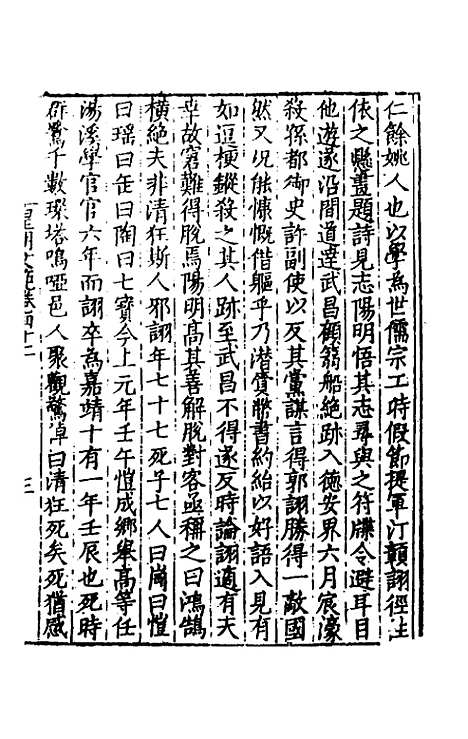 仁餘姚人也以學為世儒宗工時假節提軍汀贛詡徑往
依之懸畫題詩見志陽明悟其志尋與之符牒令避耳目
他遊遂沿間道達武昌顧翁船絶跡入德安界六月宸濠
殺孫都御史許副使以反其黨謀言得郭詡勝得一敵國
然又况能慷慨偕軀乎乃潜賫聘書約紿以好語入見有
如逗梗鏦殺之其人跡至武昌不得遂反時論詡適有天
幸故窘難得脫焉陽明高其善解脫對客亟稱之曰鴻鵠
橫絶夫非清狂斯人邪詡年七十七死子七人曰崗曰愷
曰瑶曰缶曰陶曰七寳今上元年壬午愷成鄉舉高等任
湯溪學官官六年而詡卒為嘉靖十有一年壬辰也死時
群鶩千數墚塔鳴啞邑人聚觀驚悼曰清狂死矣死猶感
皇明文范卷四十二
三